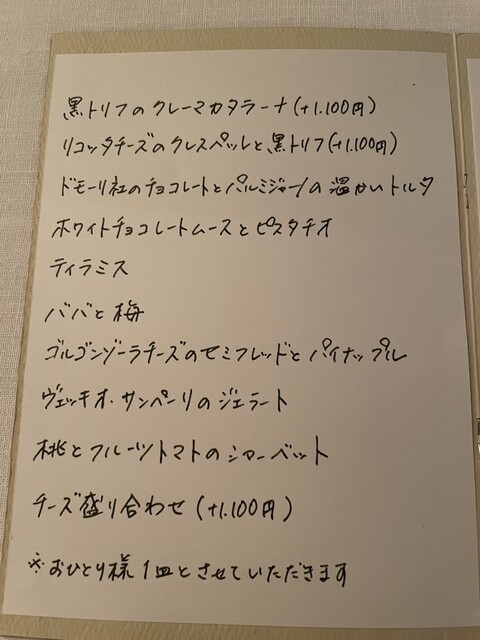 黒トリフのクレーマカタラーナ(+1.100円)
リコッタチーズのクレスペッレと黒トリフ(+1.100円)
ドモーリ社のチョコレートとパルミジャーノの温かいトルタ
ホワイトチョコレートムースとピスタチオ
ティラミス
ババと梅
ゴルゴンゾーラチーズのセミフレッドとパイナップル
ヴェッキオ・サンペーリのジェラート
桃とフルーツトマトのシャーベット
チーズ盛り合わせ(+1.100円)
※おひとり様1皿とさせていただきます